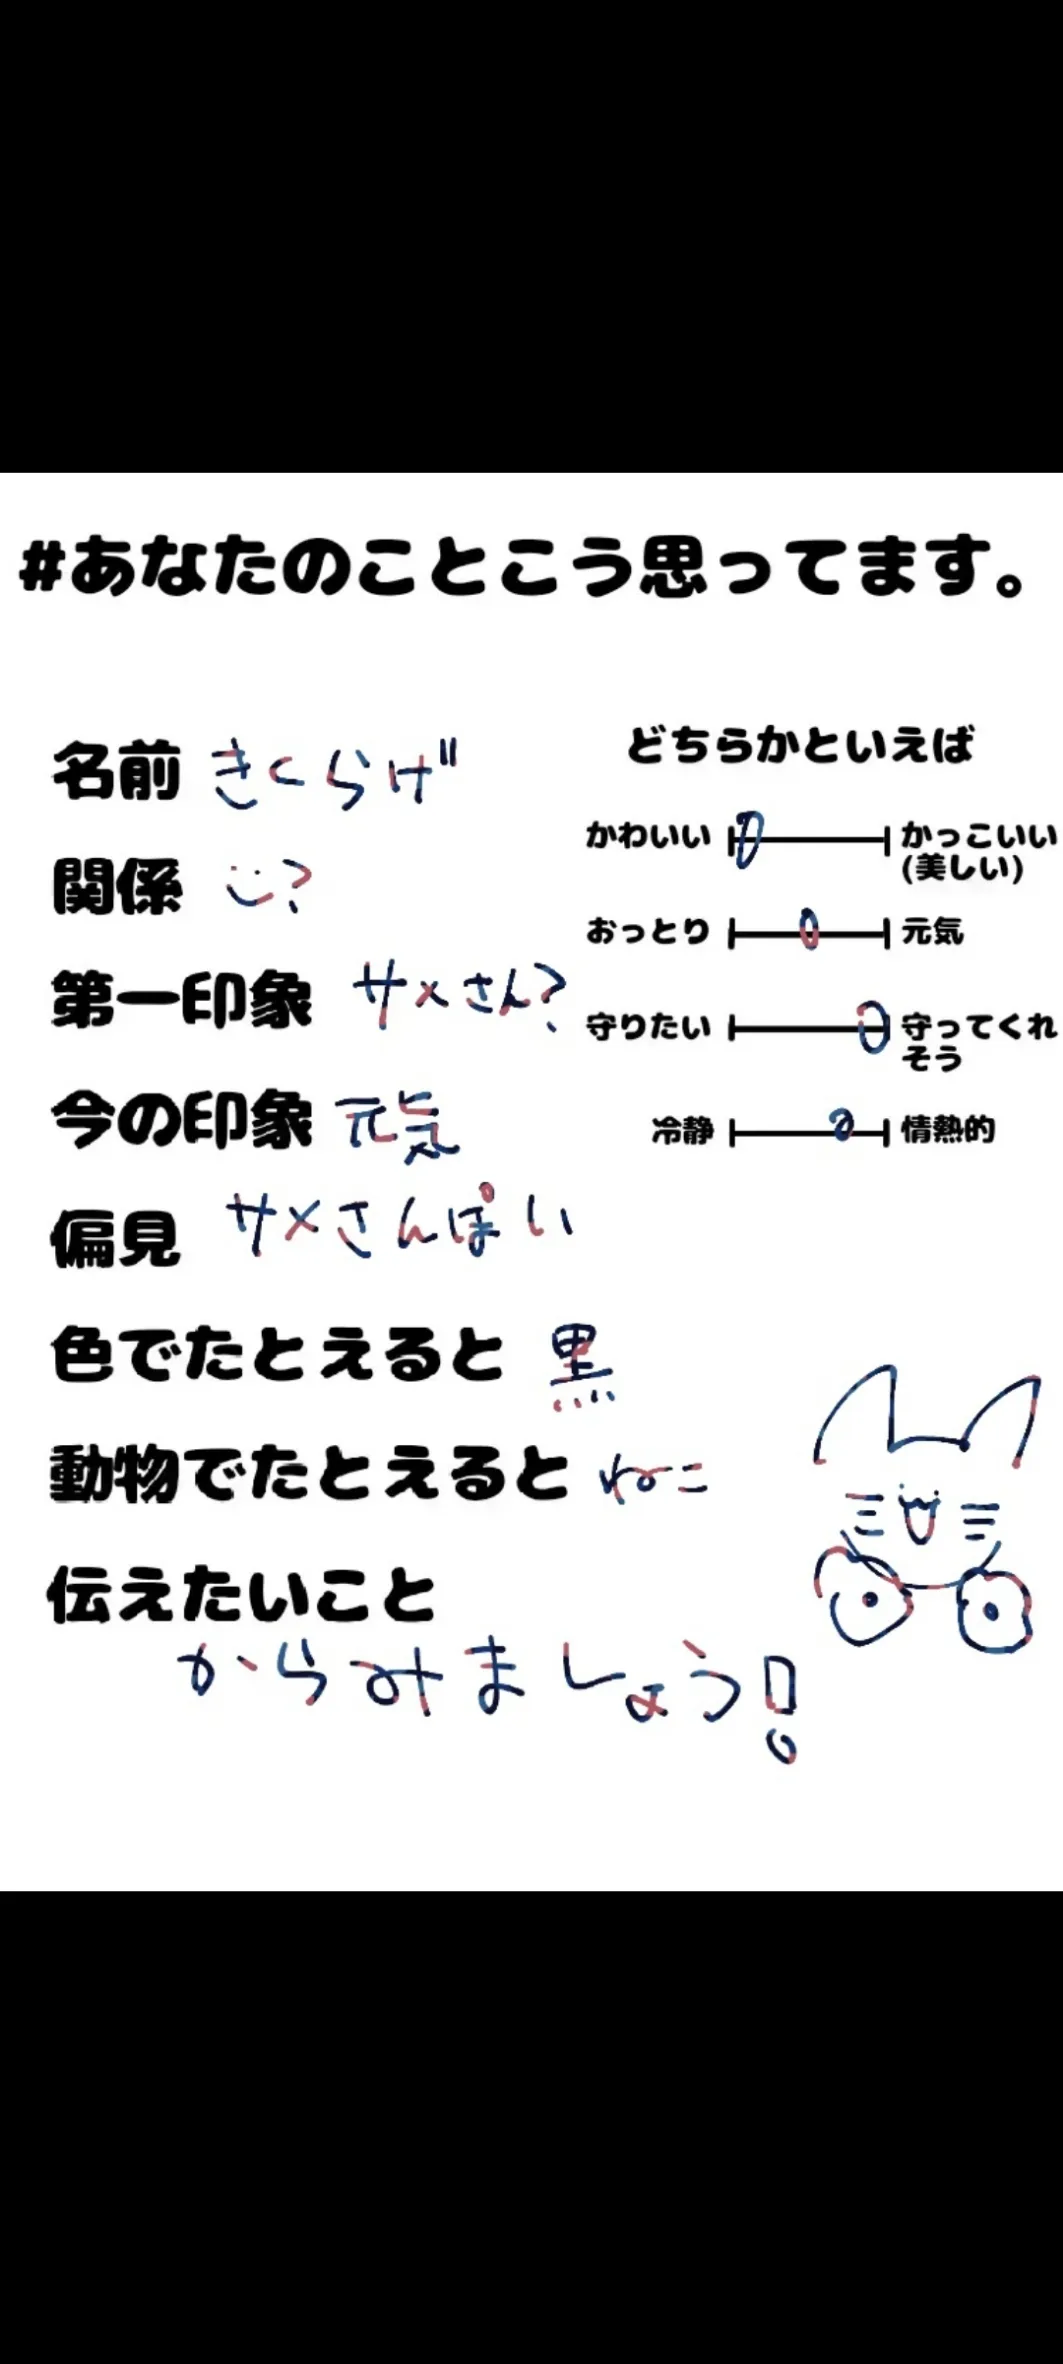 #あなたのことこう思ってます。
名前 きくらげ
関係 ?
第一印象 サメさん?
今の印象 元気
偏見 サメさんぽい
色でたとえると 黒
動物でたとえると ねこ
伝えたいこと
からみましょう!
どちらかといえば
かわいい かっこいい
(美しい)
おっとり 元気
守りたい 守ってくれ
そう
冷静 情熱的